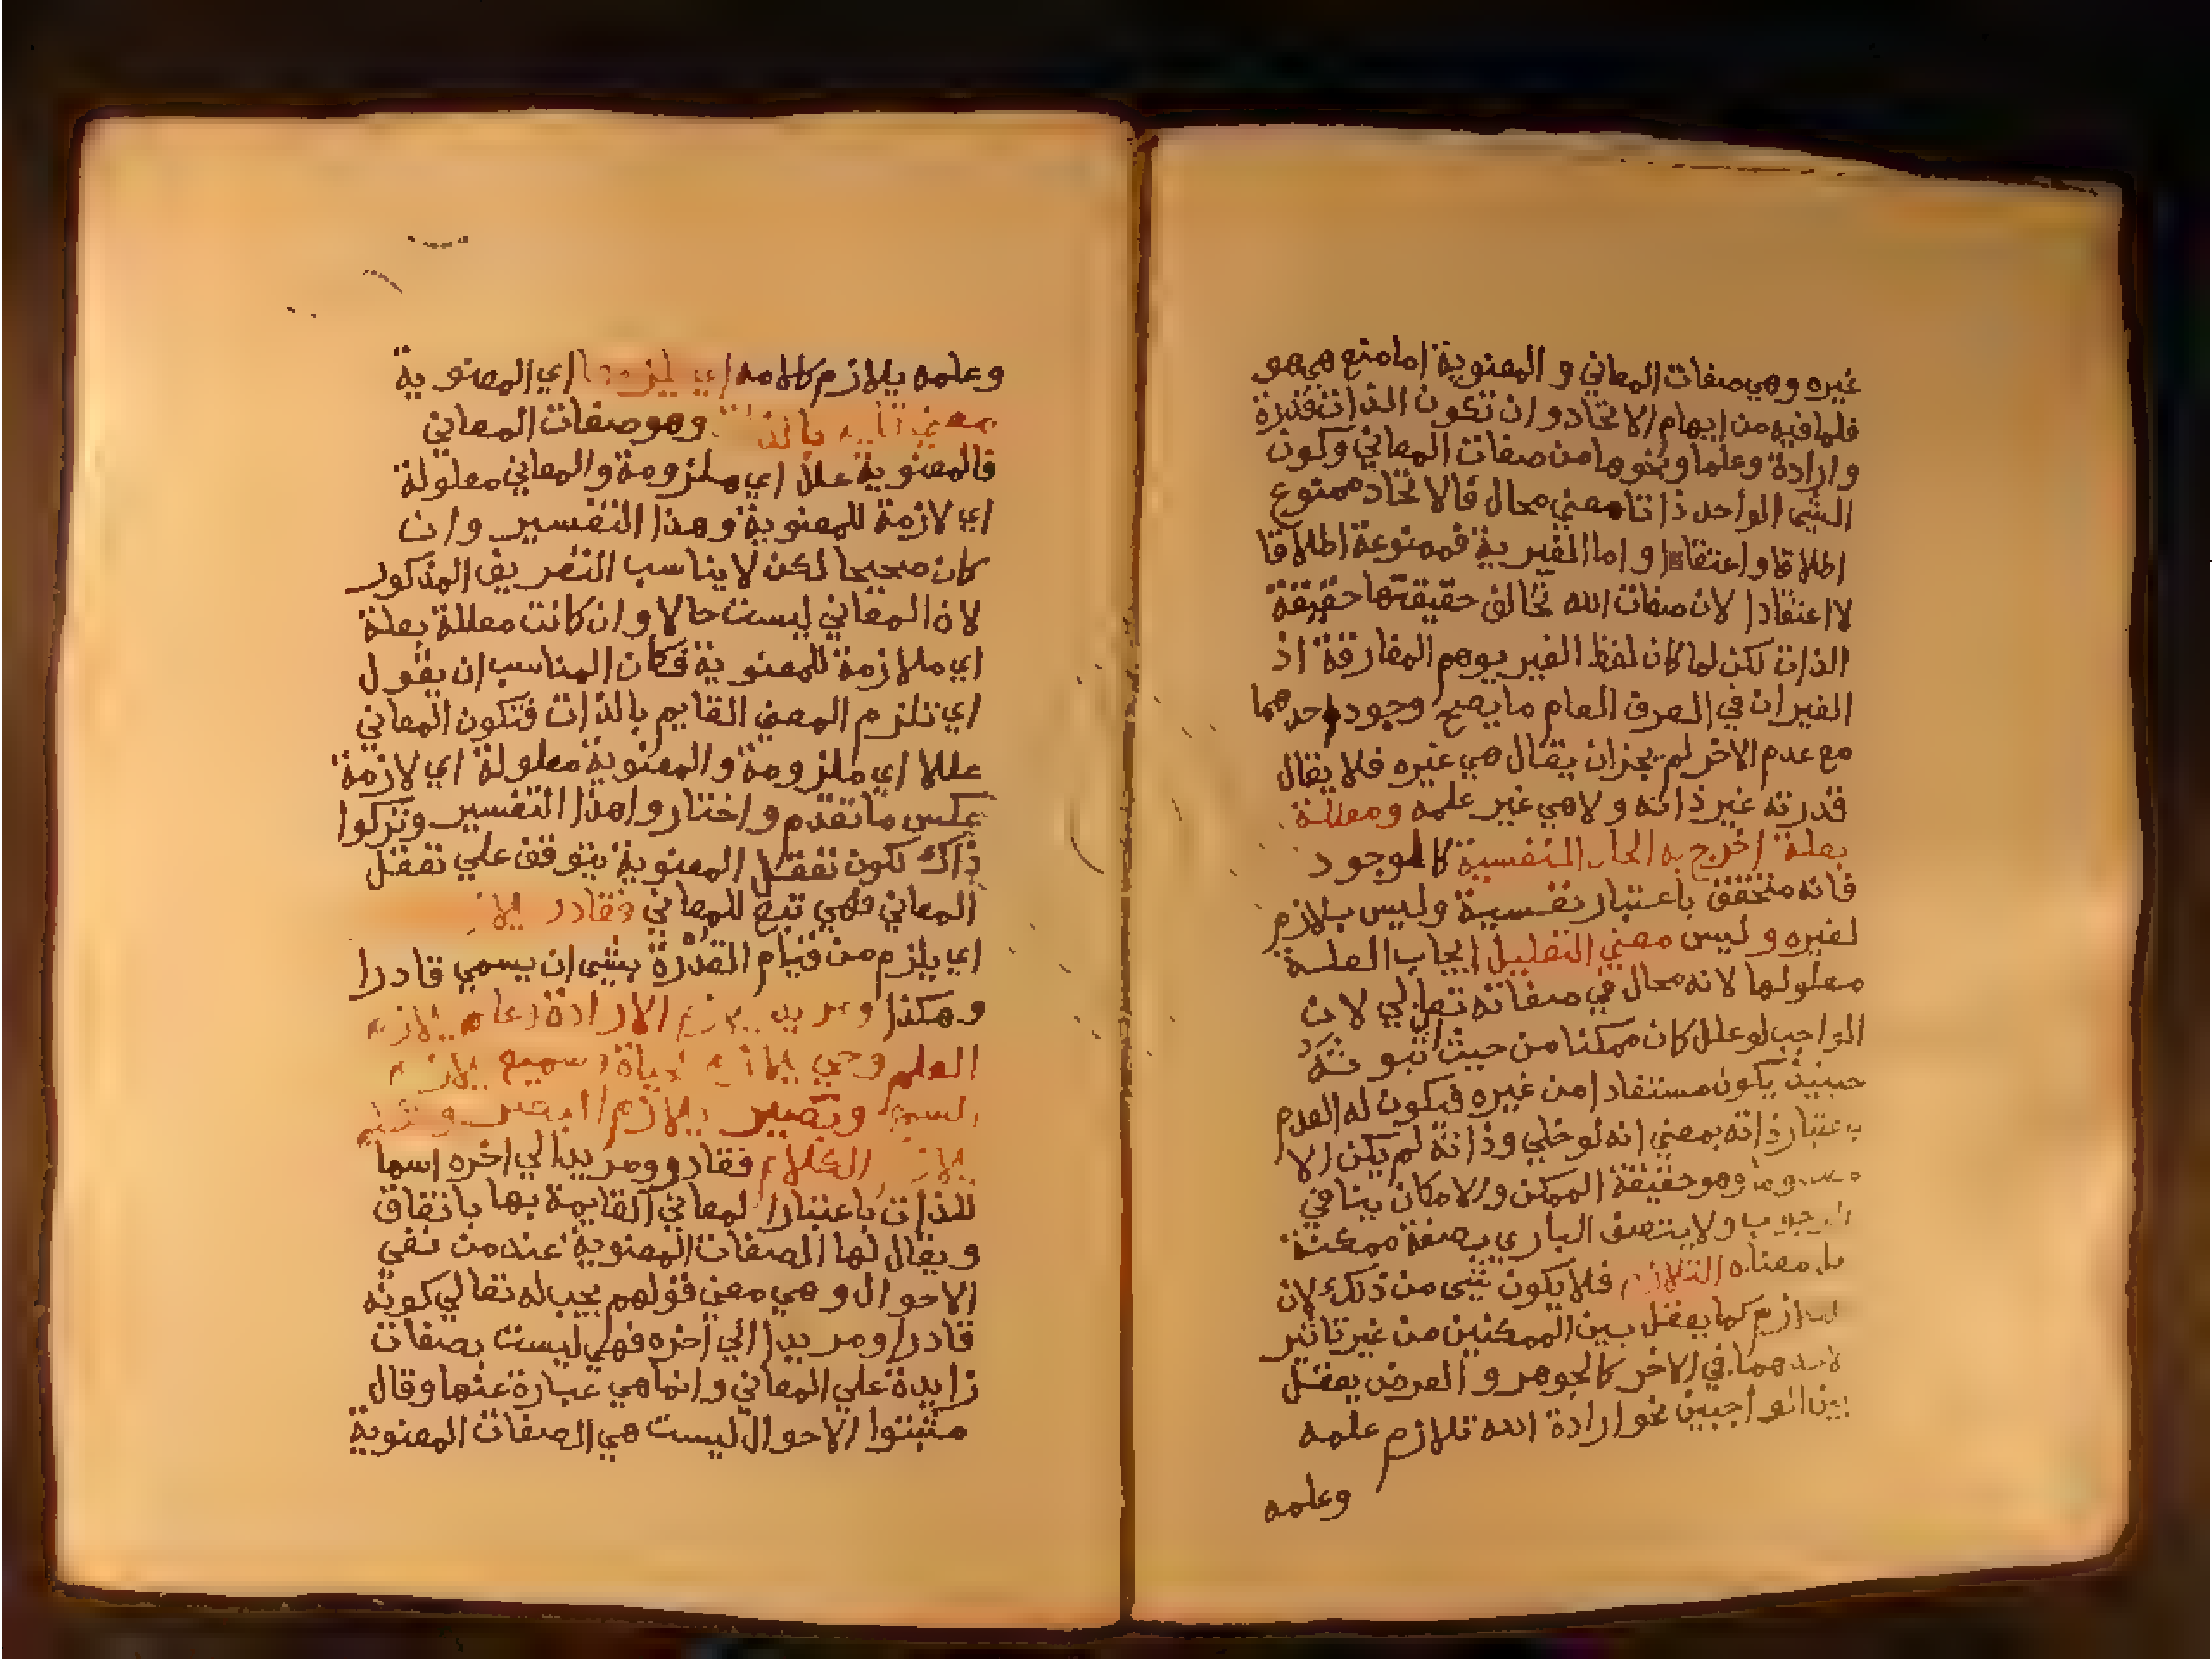 غيره وهي صفات المعاني و المعنوية اما منع هي هو
فلما فيه من ايهام الاتحاد وان تكون الذات قدرة
وارادة وعلما ونحوها من صفات المعاني وكون
الشي الواحد ذاتا معني محال فالاتحاد ممنوع
اطلاقا واعتقادا واما الغيرية فممنوعة اطلاقا
لا اعتقادا لان صفات الله تخالف حقيقتها حقيقة
الذات لكن لما كان لفظ الغير يوهم المفارقة اذ
الغيران في العرف العام ما يصح وجود احدهما
مع عدم الاخر لم يجز ان يقال هي غيره فلا يقال
قدرته غير ذاته ولا هي غير علمه ومعللة
بعلة اخرج به الحال النفسية كالوجود
فانه متحقق باعتبار نفسية وليس بلازم
لغيره وليس معني التعليل ايجاب العلة
معلولها لانه محال في صفاته تعالي لان
الواجب لو علل كان ممكنا من حيث ثبوته
حينيذ يكون مستفادا من غيره فيكون له العدم
باعتبار ذاته بمعني انه لو خلي وذاته لم يكن الا
وهو حقيقة الممكن والامكان ينافي
الوجوب ولا يتصف الباري بصفة ممكنة
بل معناه التلازم فلا يكون شي من ذلك لان
التلازم كما يعقل بين الممكنين من غير تاثير
لاحدهما في الاخر كالجوهر و العرض يعقل
بين الواجبين نحو ارادة الله تلازم علمه
وعلمه
وعلمه يلازم كلامه اي المعنوية
معني بالذات وهو صفات المعاني
فالمعنوية علل اي ملزومة والمعاني معلولة
اي لازمة للمعنوية وهذا التفسير وان
كان صحيحا لكن لا يناسب التعريف المذكور
لان المعاني ليست حالا وان كانت معللة بعلة
اي ملازمة للمعنوية فكان المناسب ان يقول
اي تلزم المعني القايم بالذات فتكون المعاني
عللا اي ملزومة والمعنوية معلولة اي لازمة
عكس ما تقدم واختاروا هذا التفسير وتركوا
ذاك لكون تعقل المعنوية يتوقف علي تعقل
المعاني فهي تبع للمعاني فقادر يلازم
اي يلزم من قيام القدرة بشي ان يسمي قادرا
وهكذا ومريد يلازم الارادة وعالم يلازم
العلم وحي يلازم الحياة وسميع يلازم
السمع وبصير يلازم البصر
يلازم الكلام فقادر ومريد الي اخره اسما
للذات باعتبار المعاني القايمة بها باتفاق
ويقال لها الصفات المعنوية عند من نفي
الاحوال وهي معني قولهم يجب له تعالي كونه
قادرا ومريدا الي اخره فهي ليست بصفات
زايدة علي المعاني وانما هي عبارة عنها وقال
مثبتوا الاحوال ليست هي الصفات المعنوية